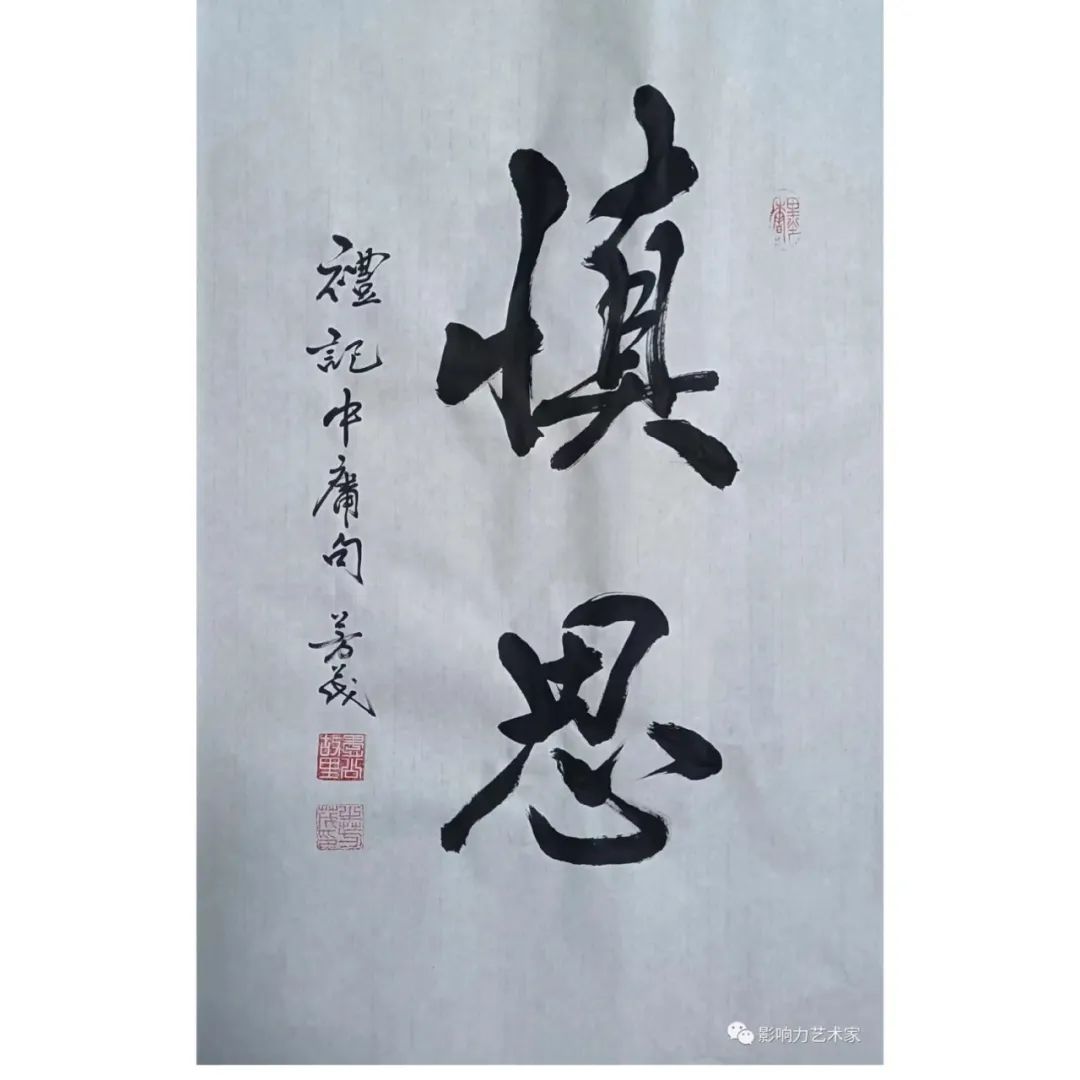 慎思
禮記中庸句 芳茂
影响力艺术家